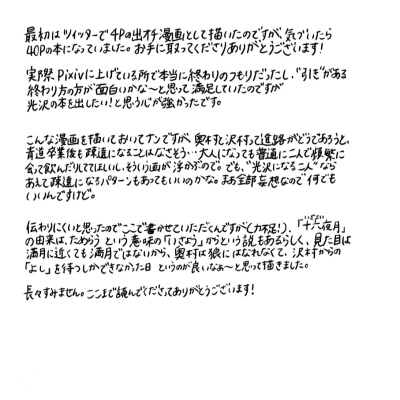 最初はツイッターで4Pの出オチ漫画として描いたのですが、気づいたら
40Pの本になっていました。お手に取ってくださりありがとうございます!
実際Pixivに上げている所で本当に終わりのつもりだったし、"引き"がある
終わり方の方が面白いかな〜と思って満足していたのですが
光沢の本を出したい!と思う心が強かったです。
こんな漫画を描いておいてナンですが、奥村と沢村って進路がどうであろうと、
青道卒業後も疎遠になることはなさそう…大人になっても普通に二人で頻繁に
会って飲んだりしててほしいし、そういう画が浮かぶので。でも、"光沢になる二人"なら
あえて疎遠になるパターンもあってもいいのかな。まあ全部妄想なので何でも
いいんですけど。
伝わりにくいと思ったのでここで書かせていただくんですが(力不足!)、「十六夜月」
いざよい
の由来は、ためらうという意味の「いさよう」からという説もあるらしく、見た目は
満月に近くても満月ではないから、奥村は狼にはなれなくて、沢村からの
「よし」を待つしかできなかった日 というのが良いなぁ〜と思って描きました。
長々すみません。ここまで読んでくださってありがとうございます!